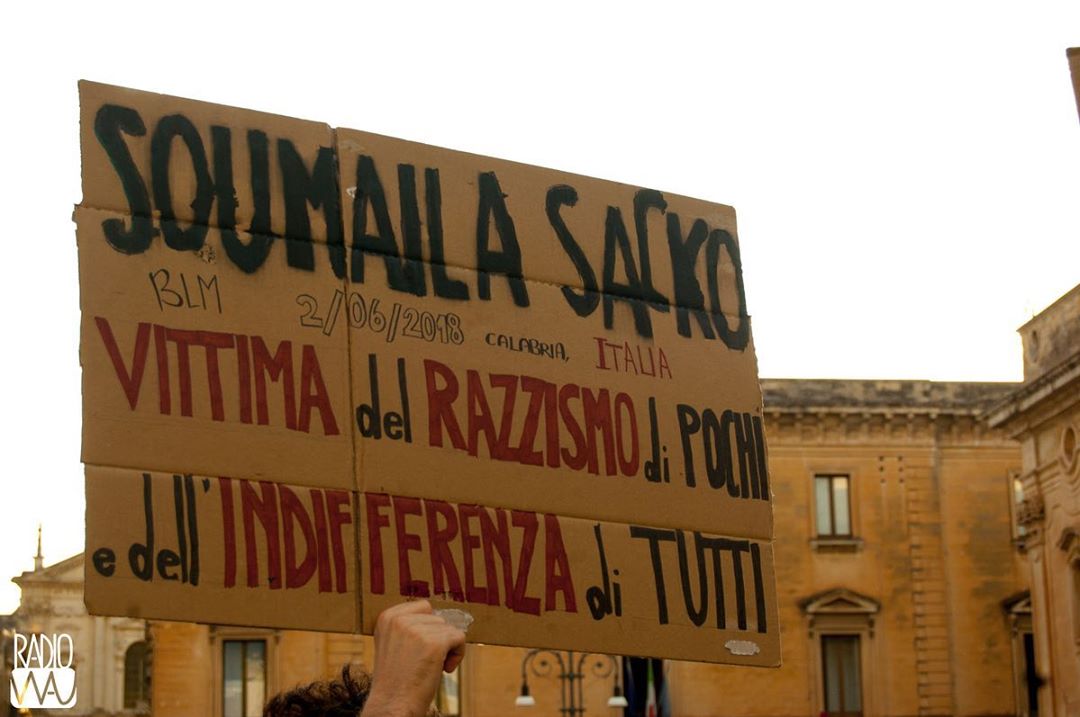 SOUMAILA SACKO
BLM 2/06/2018 CALABRIA, ITALIA
VITTIMA del RAZZISMO di POCHI
e dell'INDIFFERENZA di TUTTI
RADIO
WAU